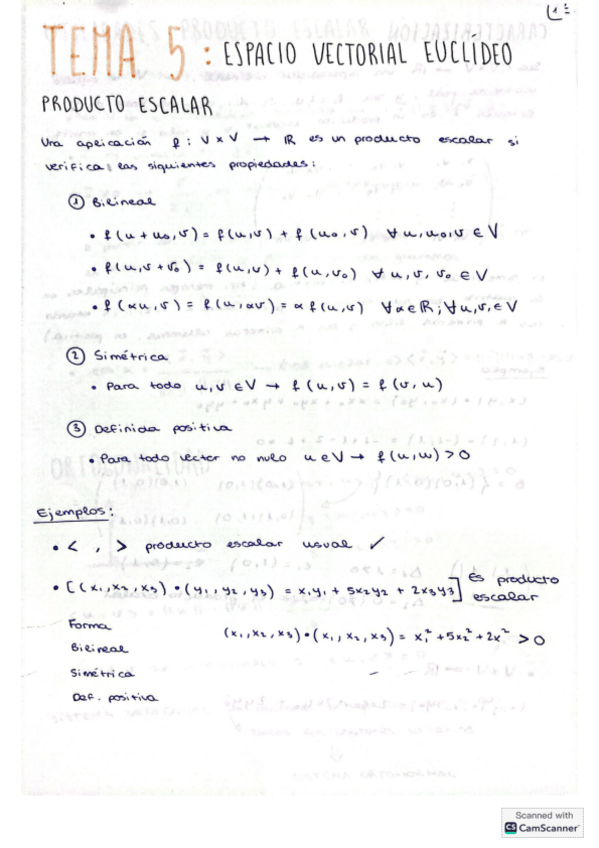 1
TEMA 5: ESPACIO VECTORIAL EUCLÍDEO
PRODUCTO ESCALAR
Una aplicación f: V x V → ℝ es un producto escalar si
verifica las siguientes propiedades:
① Bilineal
• f(u + u₀, v) = f(u, v) + f(u₀, v) ∀ u, u₀, v ∈ V
• f(u, v + v₀) = f(u, v) + f(u, v₀) ∀ u, v, v₀ ∈ V
• f(αu, v) = f(u, αv) = α f(u, v) ∀α ∈ ℝ; ∀u, v, ∈ V
② Simétrica
• Para todo u, v ∈ V → f(u, v) = f(v, u)
③ Definida positiva
• Para todo vector no nulo u ∈ V → f(u, u) > 0
Ejemplos:
• < , > producto escalar usual ✓
• [(x₁, x₂, x₃) • (y₁, y₂, y₃) = x₁y₁ + 5x₂y₂ + 2x₃y₃] Es producto escalar
Forma
(x₁, x₂, x₃) • (x₁, x₂, x₃) = x₁² + 5x₂² + 2x² > 0
Bilineal
Simétrica
Def. positiva
Scanned with
CS CamScanner